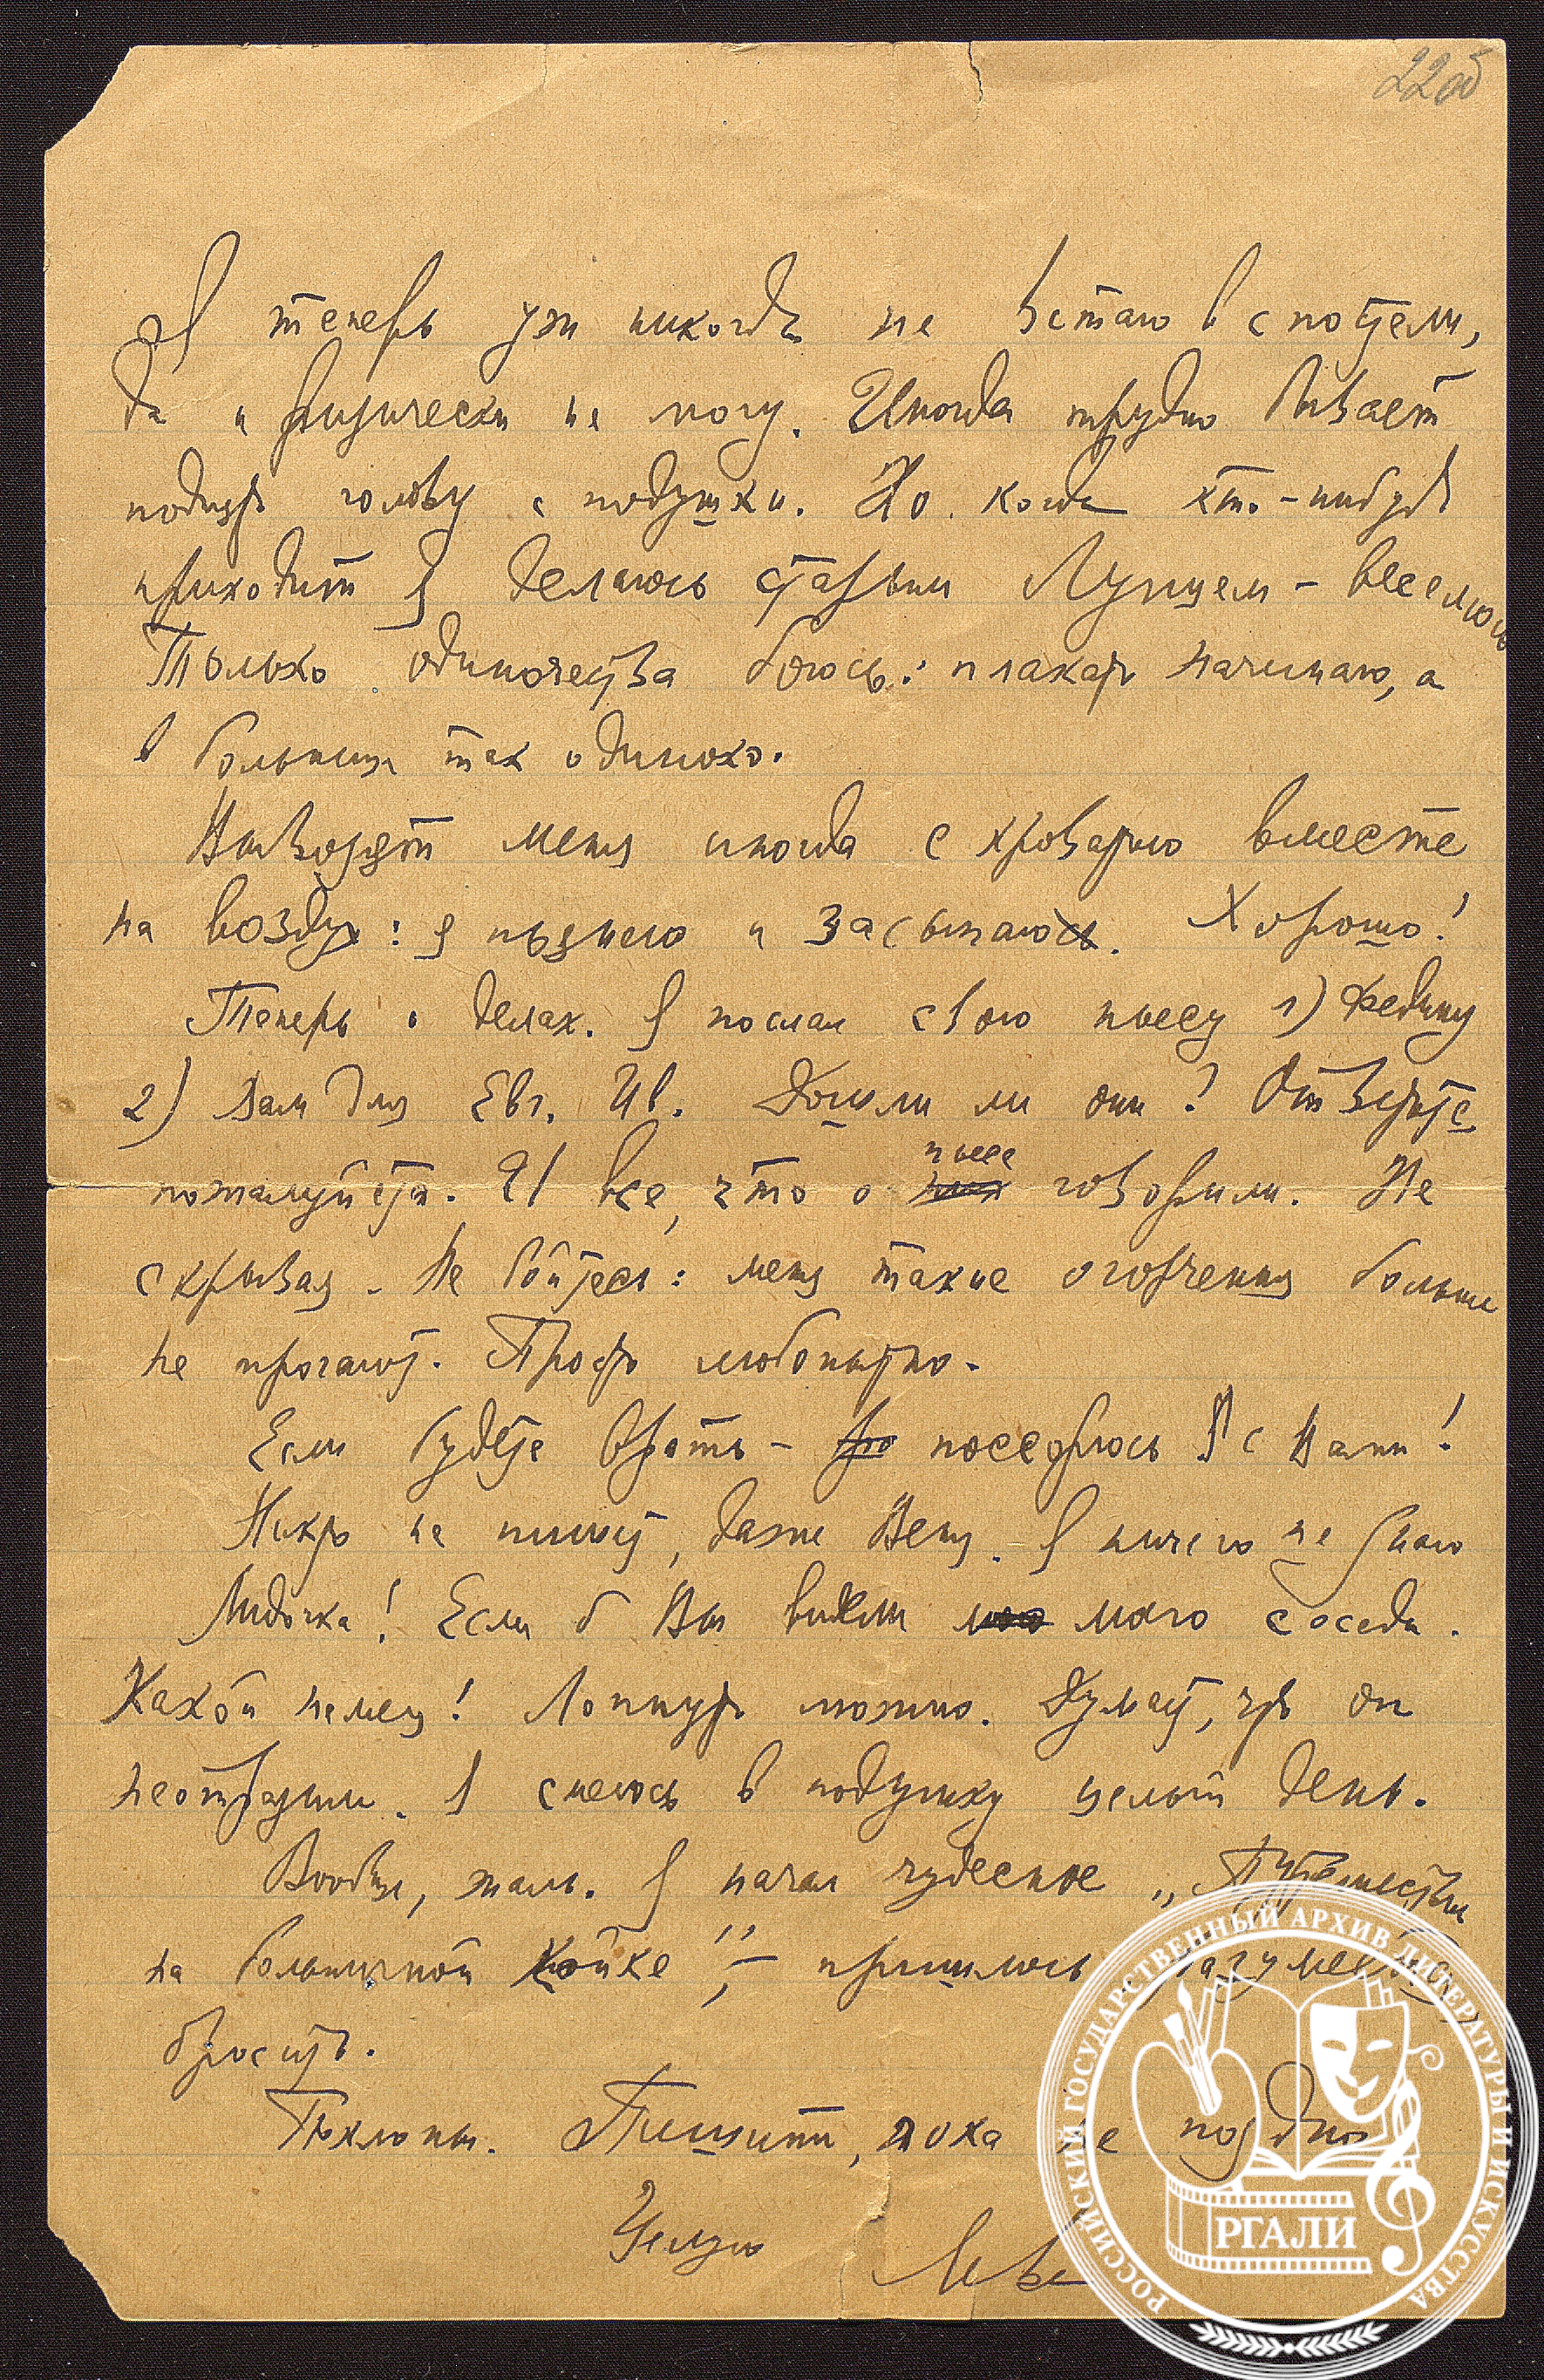 22об
Я теперь уж никогда не встаю с постели,
да и физически не могу. Иногда трудно бывает
поднять голову с подушки. Но когда кто-нибудь
приходит я делаюсь старым Лунцем – веселюсь
Только одиночества боюсь: плакать начинаю, а
в больнице так одиноко.
Вывозят меня иногда с кроватью вместе
на воздух: я пьянею и засыпаю. Хорошо!
Теперь о делах. Я послал свою пьесу 1) Федину
2) Вам для Евг. Ив. Дошли ли они? Ответьте
пожалуйста. И все, что о пьесе говорили. Не
скрывая. Не бойтесь: меня такие огорчения больше
не трогают. Просто любопытно.
Если будете врать – поссорюсь я с Вами!
Никто не пишет, даже Веня. Я ничего не знаю
Лидочка! Если б Вы видели моего соседа.
Какой немец! Лопнуть можно. Думает, что он
неотразим. Я смеюсь в подушку целый день.
Вообще, жаль. Я начал чудесное „Путешествие
на больничной койке", – пришлось, разумеется,
бросить.
Поклоны. Пишите, пока не поздно
Целую
Лева
РОССИЙСКИЙ ГОСУДАРСТВЕННЫЙ АРХИВ ЛИТЕРАТУРЫ И ИСКУССТВА
РГАЛИ